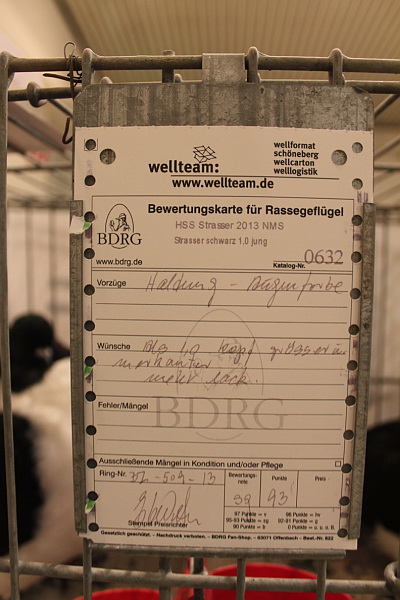 wellteam:
wellformat
schöneberg
wellcarton
welllogistik
www.wellteam.de
BDRG
Bewertungskarte für Rassegeflügel
HSS Strasser 2013 NMS
Strasser schwarz 1,0 jung
www.bdrg.de
Katalog-Nr. 0632
Vorzüge Haltung - Augenfarbe
Wünsche Als 1,0 Kopf grösser u.
markanter
mehr Lack.
Fehler/Mängel
BDRG
Ausschließende Mängel in Kondition und/oder Pflege
Ring-Nr. -509-13
Bewertungs-
note
Punkte 93
Preis
Stempel Preisrichter
97 Punkte = v 96 Punkte = hv
93-95 Punkte = sg 92-91 Punkte = g
90 Punkte = b 0 Punkte = u. o. B.
Gesetzlich geschützt. – Nachdruck verboten. – BDRG Fan-Shop. – 63071 Offenbach – Best.-Nr. 922